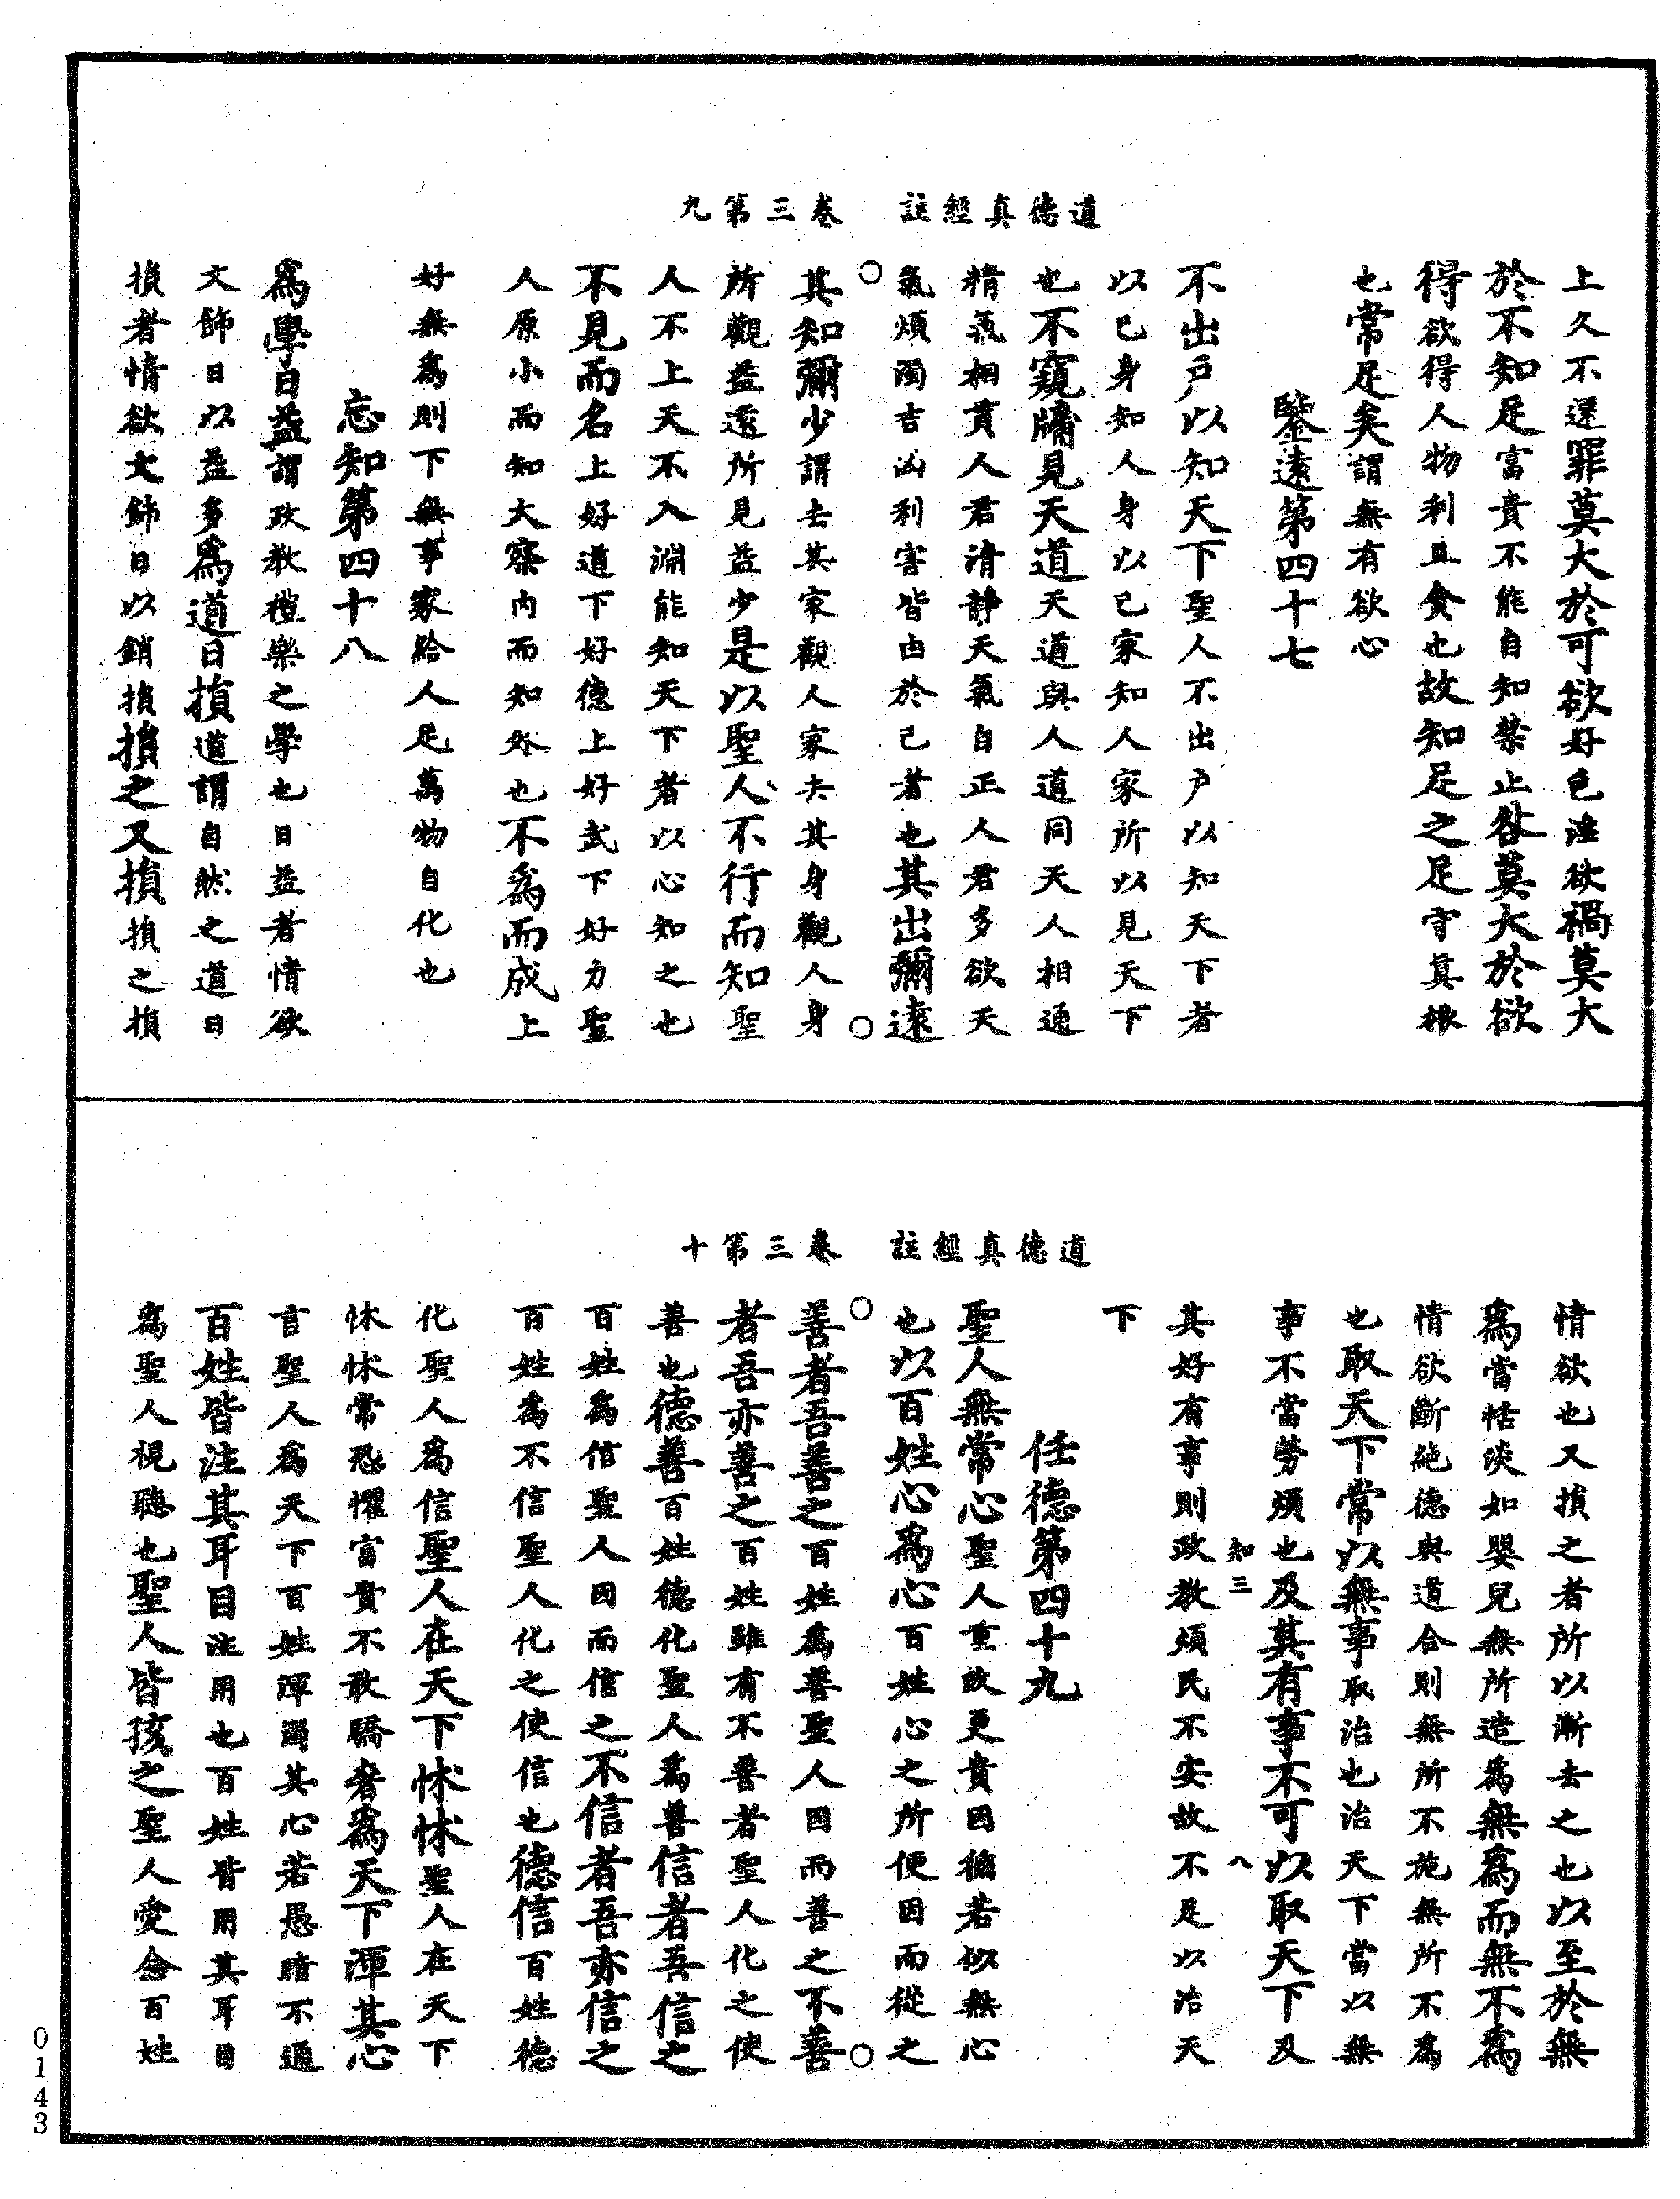 道德真經註　卷三第九
上久不還罪莫大於可欲好色淫欲禍莫大
於不知足富貴不能自知禁止咎莫大於欲
得欲得人物利且貪也故知足之足守真根
也常足矣謂無有欲心
鑒遠第四十七
不出戶以知天下聖人不出戶以知天下者
以己身知人身以己家知人家所以見天下
也不窺牖見天道天道與人道同天人相通
精氣相貫人君清靜天氣自正人君多欲天
氣煩濁吉凶利害皆由於己者也其出彌遠
其知彌少謂去其家觀人家去其身觀人身
所觀益遠所見益少是以聖人不行而知聖
人不上天不入淵能知天下者以心知之也
不見而名上好道下好德上好武下好力聖
人原小而知大察內而知外也不為而成上
好無為則下無事家給人足萬物自化也
忘知第四十八
為學日益謂政教禮樂之學也日益者情欲
文飾日以益多為道日損道謂自然之道日
損者情欲文飾日以銷損損之又損損之損
道德真經註　卷三第十
情欲也又損之者所以漸去之也以至於無
為當恬淡如嬰兒無所造為無為而無不為
情欲斷絕德與道合則無所不施無所不為
也取天下常以無事取治也治天下當以無
事不當勞煩也及其有事不可以取天下及
知三　八
其好有事則政教煩民不安故不足以治天
下
任德第四十九
聖人無常心聖人重改更貴因循若似無心
也以百姓心為心百姓心之所便因而從之
善者吾善之百姓為善聖人因而善之不善
者吾亦善之百姓雖有不善者聖人化之使
善也德善百姓德化聖人為善信者吾信之
百姓為信聖人因而信之不信者吾亦信之
百姓為不信聖人化之使信也德信百姓德
化聖人為信聖人在天下怵怵聖人在天下
怵怵常恐懼富貴不敢驕奢為天下渾其心
言聖人為天下百姓渾濁其心若愚暗不通
百姓皆注其耳目注用也百姓皆用其耳目
為聖人視聽也聖人皆孩之聖人愛念百姓
0143